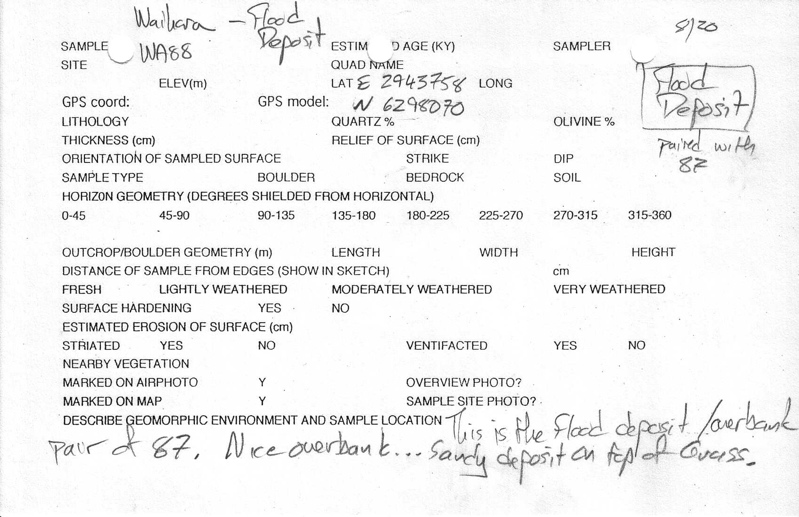 Waihora - Flood Deposit 8/20
SAMPLE WA88 ESTIM D AGE (KY) SAMPLER
SITE QUAD NAME
ELEV(m) LAT E 2943758 LONG
GPS coord: GPS model: N 6298070
Flood Deposit
paired with 87
LITHOLOGY QUARTZ % OLIVINE %
THICKNESS (cm) RELIEF OF SURFACE (cm)
ORIENTATION OF SAMPLED SURFACE STRIKE DIP
SAMPLE TYPE BOULDER BEDROCK SOIL
HORIZON GEOMETRY (DEGREES SHIELDED FROM HORIZONTAL)
0-45 45-90 90-135 135-180 180-225 225-270 270-315 315-360
OUTCROP/BOULDER GEOMETRY (m) LENGTH WIDTH HEIGHT
DISTANCE OF SAMPLE FROM EDGES (SHOW IN SKETCH) cm
FRESH LIGHTLY WEATHERED MODERATELY WEATHERED VERY WEATHERED
SURFACE HARDENING YES NO
ESTIMATED EROSION OF SURFACE (cm)
STRIATED YES NO VENTIFACTED YES NO
NEARBY VEGETATION
MARKED ON AIRPHOTO Y OVERVIEW PHOTO?
MARKED ON MAP Y SAMPLE SITE PHOTO?
DESCRIBE GEOMORPHIC ENVIRONMENT AND SAMPLE LOCATION This is the flood deposit/overbank
pair of 87. Nice overbank... Sandy deposit on top of